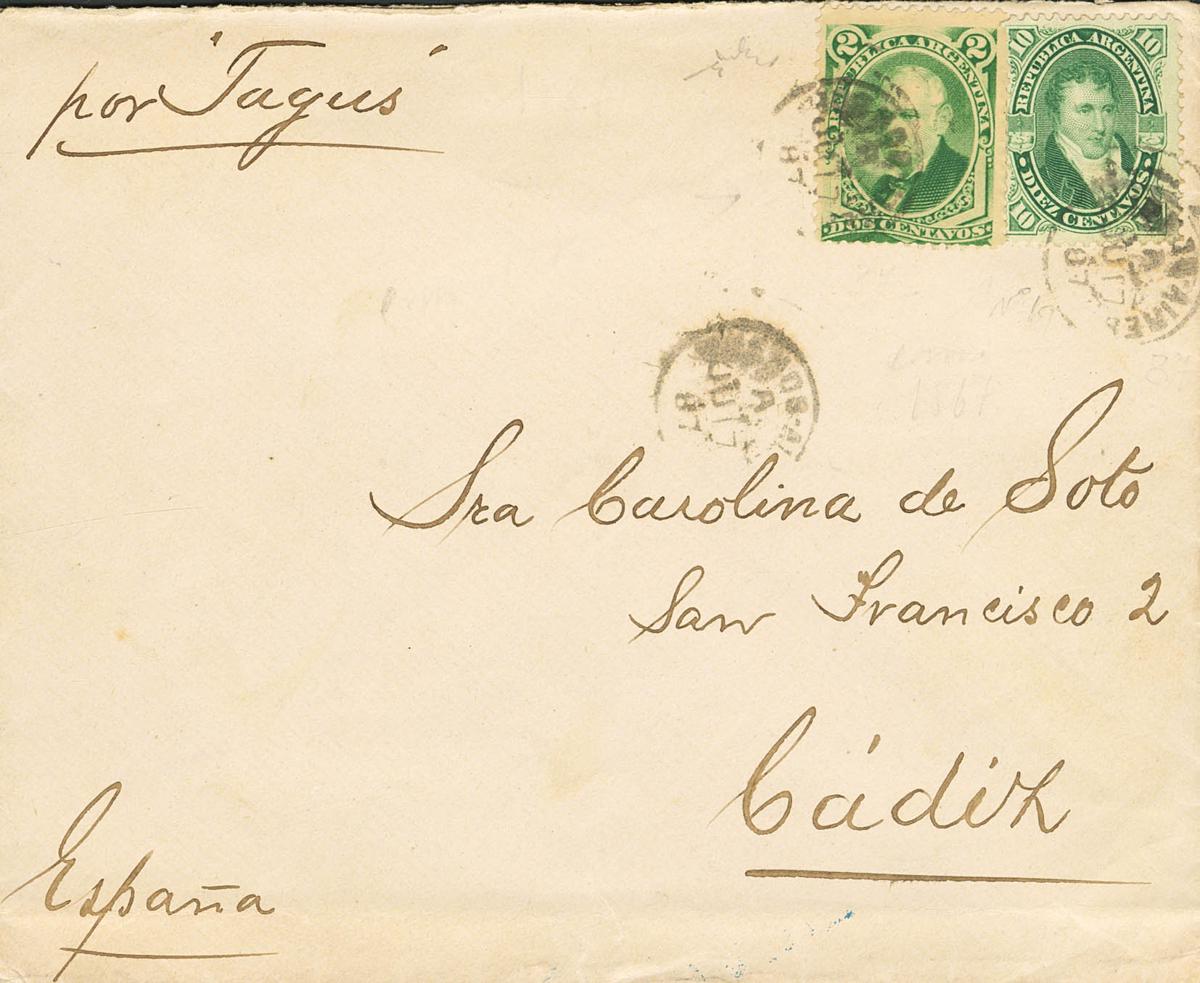 por "Tagus"
2 2
REPUBLICA ARGENTINA
DOS CENTAVOS
10 10
REPUBLICA ARGENTINA
10 DIEZ CENTAVOS
AIRES
JUL 7
Sra Carolina de Soto
San Francisco 2
Cádiz
España